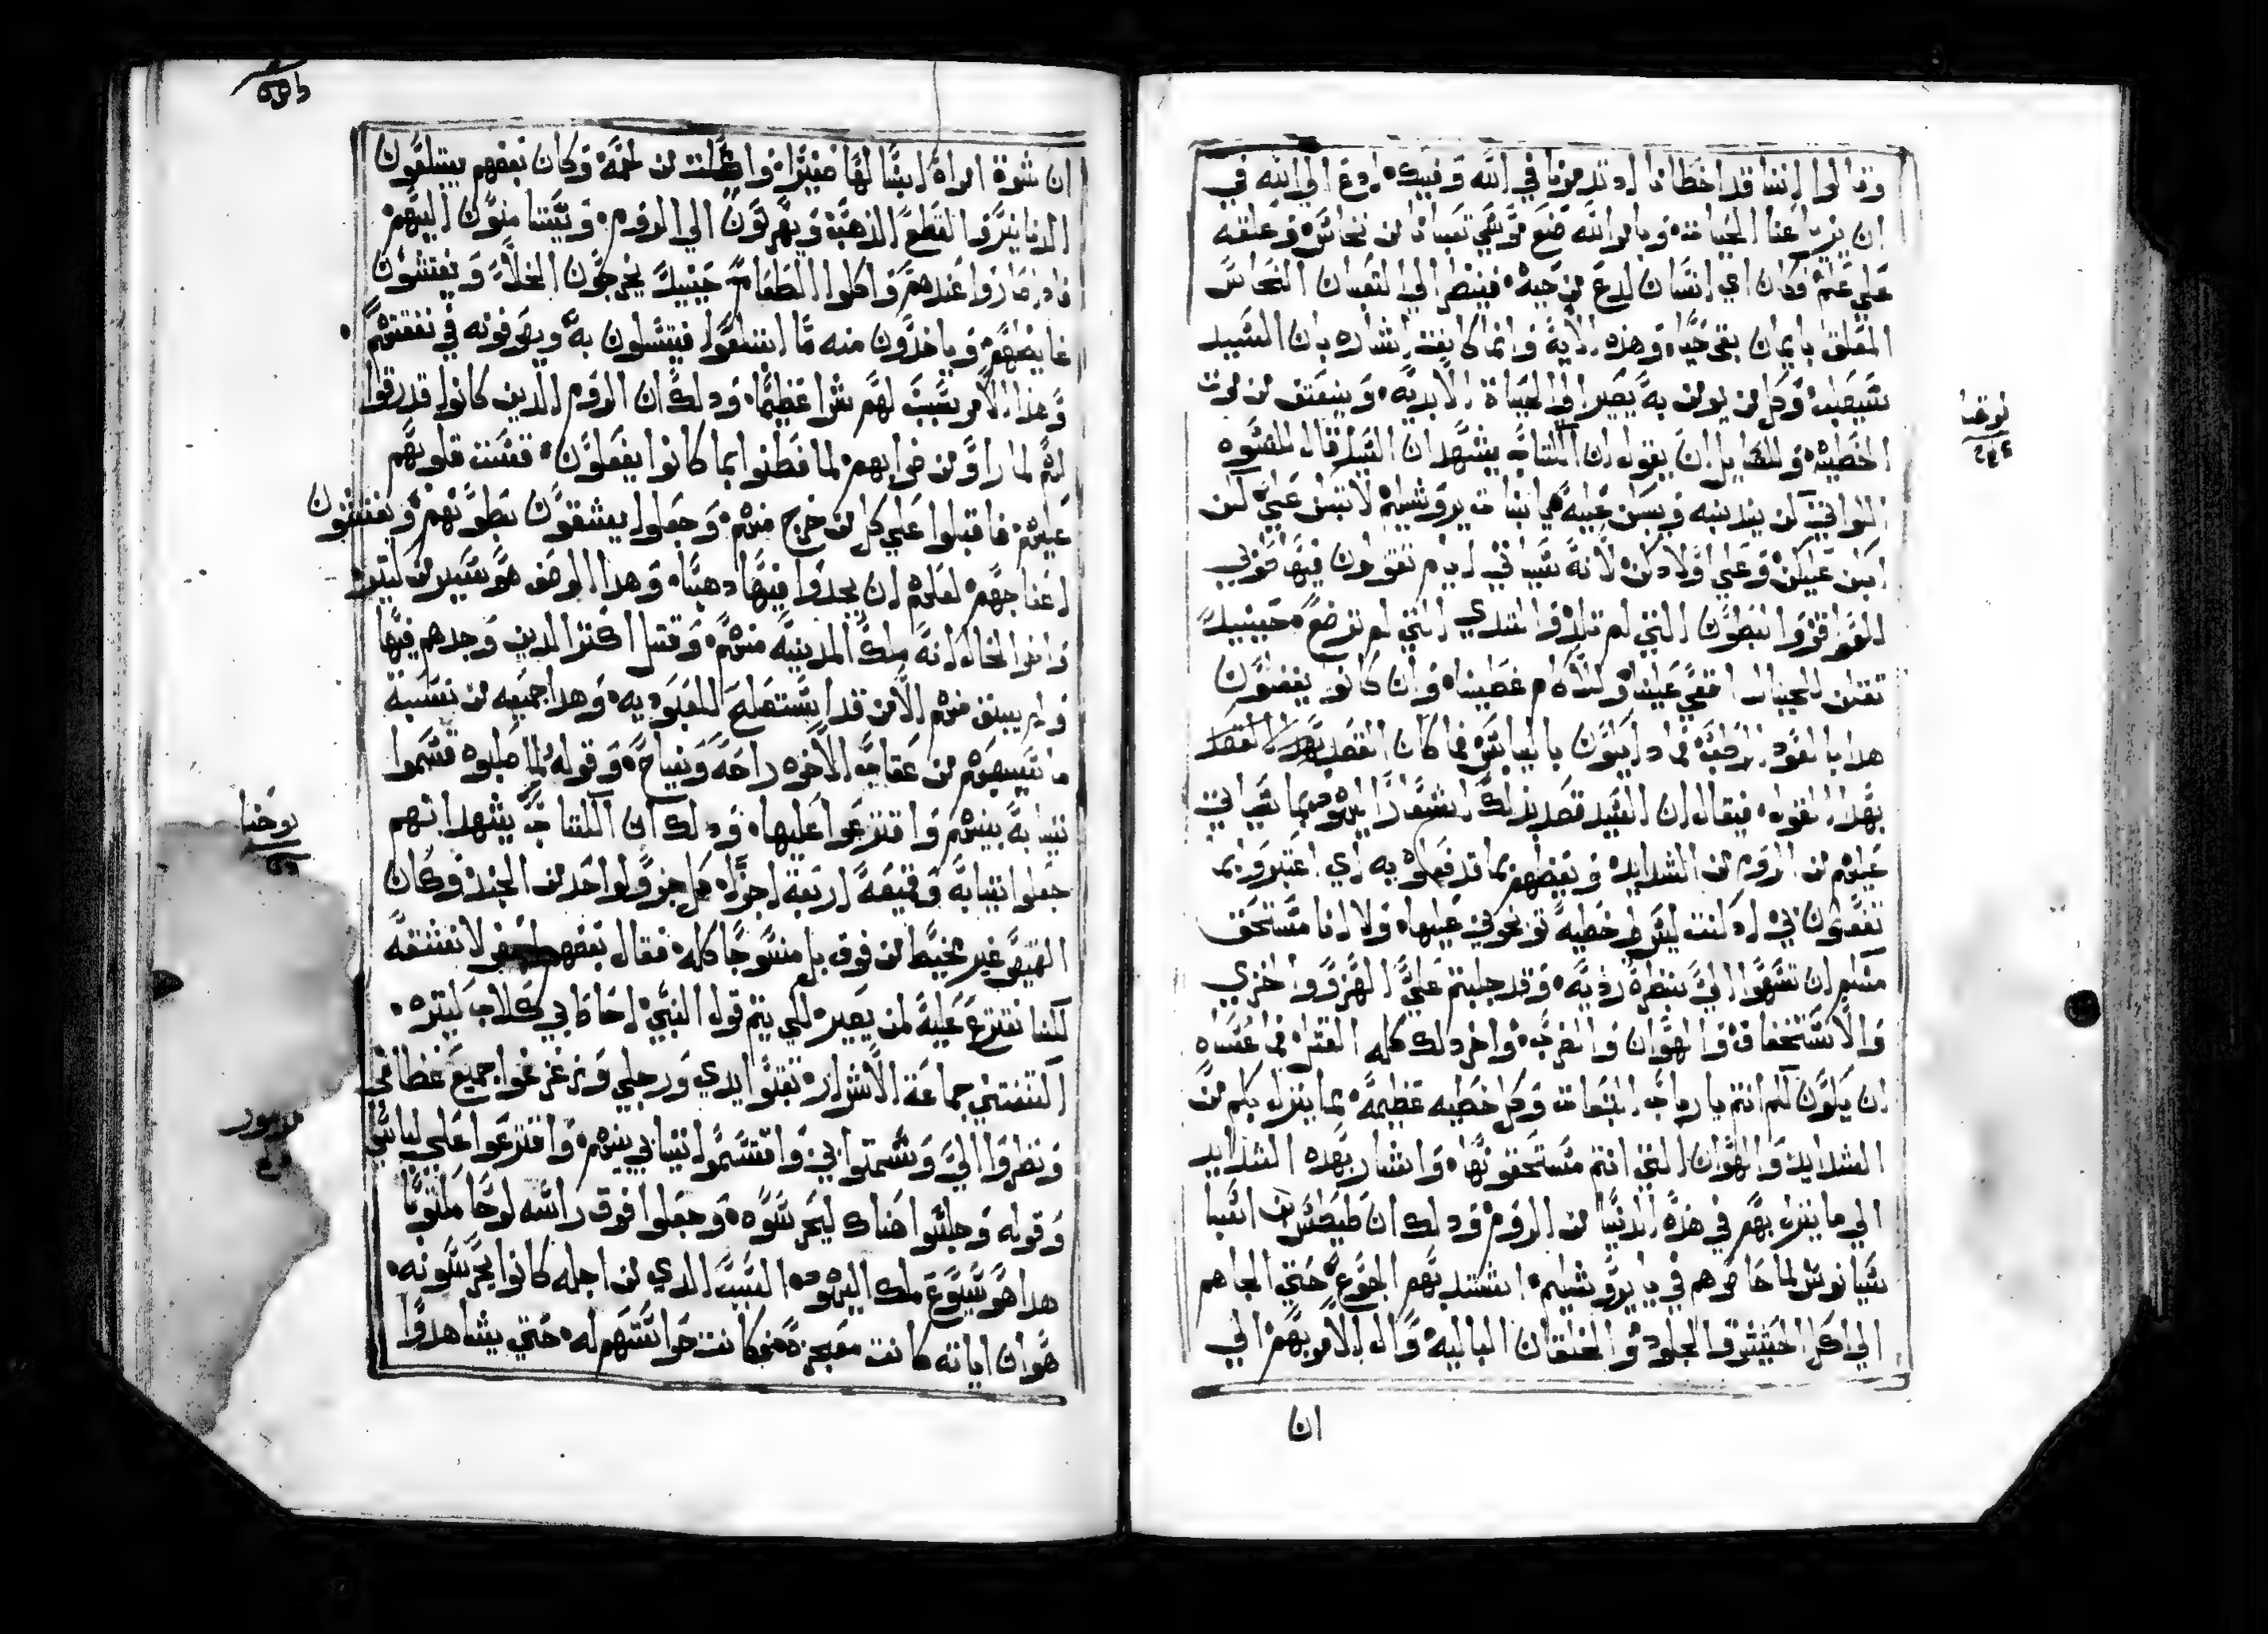 وقالوا اننا قد اخطانا اد تدمرنا في الله وفيك. ادع الي الله في
ان يزيل عنا الحيات. وبامر الله صنع موسي تعبانا من نحاس وعلقه
علي علم فكان اي انسان لدغ من حيه. فينظر الي التعبان النحاس
المعلق بايمان بقي حيا. وهذه الاية وانما كانت اشاره بان السيد
سيصلب. وكل من يومن به يصير الي الحياة الابديه. وينعتق من موت
الخطيه. وللقايل ان يقول ان الكتاب يشهد ان السيد قال للنسوه
اللواتي كن يندبنه ويبكين عليه يا بنات يروشليم لا تبكين علي لكن
ابكين عليكن وعلي اولادكن لانه ستاتي ايام تقولون فيها طوبي
العواقر والبطون التي لم تلد والتدي التي لم ترضع. حينيد
تقلن للجبال اقعي علينا وللاكام غطينا. وان كانوا يفعلون
هدا بالعود الرطب فمادا يكون باليابس فما كان القصد
بهدا القول. فيقال ان السيد قصد بدلك اشعار اليهود بما سياتي
عليهم من الروم من الشدايد وبعضهم بما قد فعلوه به اي اعتبروا بما
تفعلون بي اد لست ليس لي خطيه توبخوني عليها. ولا انا مستحق
منكم ان تنظروا الي بنظرة رديه. وقد جلبتم علي الهزو والخزي
والاستخفاف والهوان والضرب. واخر دلك كله القتل فما عساه
ان يكون لكم انتم يا ارباب الشهوات وكل خطيه عظيمه. بما ينزل بكم من
الشدايد والهوان التي انتم مستحقونها. واشار بهده الشدايد
الي ما ينزل بهم في هذه الدنيا من الروم ودلك ان طيطس بن اسبا
سيانوس لما حاصرهم في يايروشليم. اشتد بهم الجوع حتي الجاهم
الي اكل الحشيش والجلود والخلقان الباليه. وال الامر بهم الي
ان
يوحنا
ان شوة امراة ابنا لها صغيرا واكلت من لحمه وكان بعضهم يبتلعون
الدنانير والقطع الذهب ويهربون الي الروم. ويستامنون اليهم
فادا صاروا عندهم واكلوا الطعام حينيد يخرجون الخلا ويفتشون
غايطهم. وياخدون منه ما ابتلعوا فيغسلون به ويصرفونه في نفقتهم.
وهذا الامر سبب لهم شرا عظيما. ودلك ان الروم الدين كانوا قد رقوا
لهم لما راوا من ضرابهم. لما فطنوا بما كانوا يفعلون. قست قلوبهم
عليهم. فاقبلوا علي كل من خرج منهم. وجعلوا يشقون بطونهم. ويفتشون
امعاجهم لعلهم ان يجدوا فيها دهبا. وهدا الوصف هو يسير من كتير
وامر الحال انه ملك المدينه منهم. وقتل اكتر الدين وجدهم فيها
ولم يبق منهم الا من قد استصلح للعبوديه. وهدا جميعه من نسبة
ما سيصيبهم من عقاب الاخره راحه ونياح. وقوله لما صلبوه قسموا
تيابه بينهم واقترعوا عليها. ودلك ان الكتاب يشهد انهم
جعلوا تيابه وقميصه اربعة اجزا. كل جزو لواحد من الجند وكان
القميص غير مخيط من فوق بل منسوجا كله. فقال بعضهم لبعض لا نشقه
لكنا نقترع عليه لمن يصير. لكي يتم قول النبي احاط بي كلاب كتيره.
اكتنفتني جماعة الاشرار. تقبوا يدي ورجلي وزعزعوا جميع عظامي
ونظروا الي وشمتوا بي. واقتسموا تيابي بينهم. واقترعوا علي لباسي
وقوله وجلسوا هناك ليحرسوه. وجعلوا فوق راسه لوحا مكتوبا
هدا هو يسوع ملك اليهود. السبب الدي من اجله كانوا يحرسونه.
هو ان اياته كانت معجزة فكانت حراستهم له. حتي يشاهدوا
يوحنا
مزمور